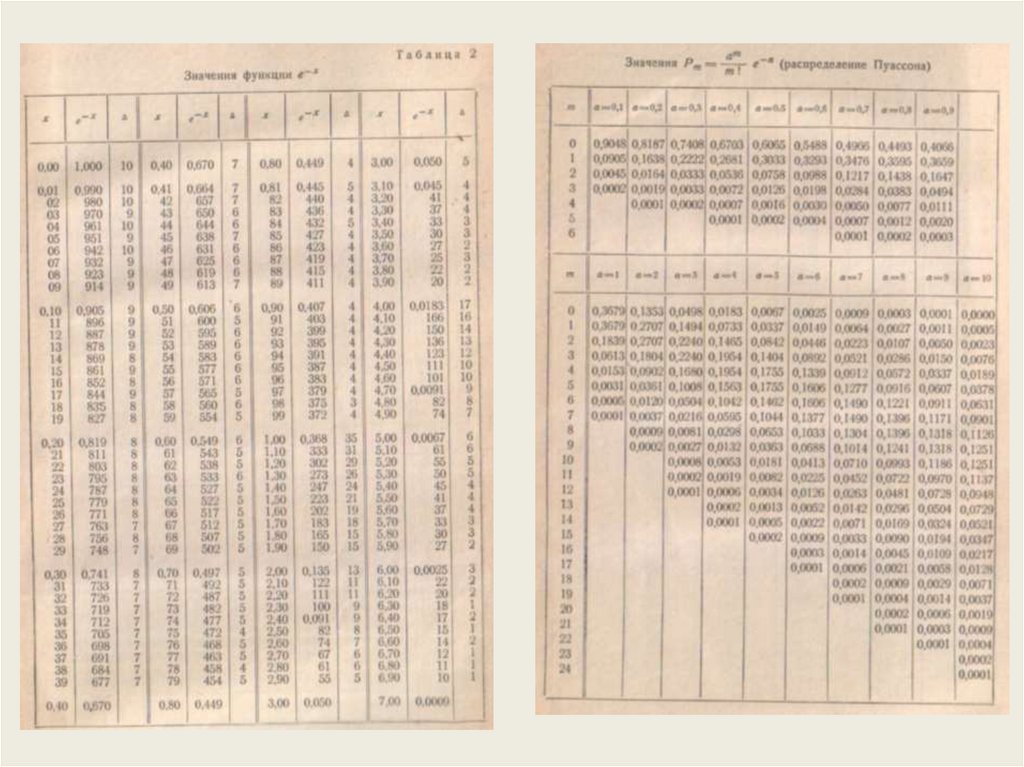 Таблица 2
Значения функции e⁻ˣ
x e⁻ˣ Δ x e⁻ˣ Δ x e⁻ˣ Δ x e⁻ˣ Δ
0,00 1,000 10 0,40 0,670 7 0,80 0,449 4 3,00 0,050 5
0,01 0,990 10 0,41 0,664 7 0,81 0,445 5 3,10 0,045 4
02 980 10 42 657 7 82 440 4 3,20 41 4
03 970 9 43 650 6 83 436 4 3,30 37 4
04 961 10 44 644 6 84 432 5 3,40 33 3
05 951 9 45 638 7 85 427 4 3,50 30 3
06 942 10 46 631 6 86 423 4 3,60 27 2
07 932 9 47 625 6 87 419 4 3,70 25 3
08 923 9 48 619 6 88 415 4 3,80 22 2
09 914 9 49 613 7 89 411 4 3,90 20 2
0,10 0,905 9 0,50 0,606 6 0,90 0,407 4 4,00 0,0183 17
11 896 9 51 600 5 91 403 4 4,10 166 16
12 887 9 52 595 6 92 399 4 4,20 150 14
13 878 9 53 589 6 93 395 4 4,30 136 13
14 869 8 54 583 6 94 391 4 4,40 123 12
15 861 9 55 577 6 95 387 4 4,50 111 10
16 852 8 56 571 6 96 383 4 4,60 101 10
17 844 9 57 565 5 97 379 4 4,70 0,0091 9
18 835 8 58 560 6 98 375 3 4,80 82 8
19 827 8 59 554 5 99 372 4 4,90 74 7
0,20 0,819 8 0,60 0,549 6 1,00 0,368 35 5,00 0,0067 6
21 811 8 61 543 5 1,10 333 31 5,10 61 6
22 803 8 62 538 5 1,20 302 29 5,20 55 5
23 795 8 63 533 6 1,30 273 26 5,30 50 5
24 787 8 64 527 5 1,40 247 24 5,40 45 4
25 779 8 65 522 5 1,50 223 21 5,50 41 4
26 771 8 66 517 5 1,60 202 19 5,60 37 4
27 763 7 67 512 5 1,70 183 18 5,70 33 3
28 756 8 68 507 5 1,80 165 15 5,80 30 3
29 748 7 69 502 5 1,90 150 15 5,90 27 2
0,30 0,741 8 0,70 0,497 5 2,00 0,135 13 6,00 0,0025 3
31 733 7 71 492 5 2,10 122 11 6,10 22 2
32 726 7 72 487 5 2,20 111 11 6,20 20 2
33 719 7 73 482 5 2,30 100 9 6,30 18 1
34 712 7 74 477 5 2,40 0,091 9 6,40 17 2
35 705 7 75 472 4 2,50 82 8 6,50 15 1
36 698 7 76 468 5 2,60 74 7 6,60 14 2
37 691 7 77 463 5 2,70 67 6 6,70 12 1
38 684 7 78 458 4 2,80 61 6 6,80 11 1
39 677 7 79 454 5 2,90 55 5 6,90 10 1
0,40 0,670 0,80 0,449 3,00 0,050 7,00 0,0009
Значения Pₘ = aᵐ/m! e⁻ᵃ (распределение Пуассона)
m a=0,1 a=0,2 a=0,3 a=0,4 a=0,5 a=0,6 a=0,7 a=0,8 a=0,9
0 0,9048 0,8187 0,7408 0,6703 0,6065 0,5488 0,4966 0,4493 0,4066
1 0,0905 0,1638 0,2222 0,2681 0,3033 0,3293 0,3476 0,3595 0,3659
2 0,0045 0,0164 0,0333 0,0536 0,0758 0,0988 0,1217 0,1438 0,1647
3 0,0002 0,0019 0,0033 0,0072 0,0126 0,0198 0,0284 0,0383 0,0494
4 0,0001 0,0002 0,0007 0,0016 0,0030 0,0050 0,0077 0,0111
5 0,0001 0,0002 0,0004 0,0007 0,0012 0,0020
6 0,0001 0,0002 0,0003
m a=1 a=2 a=3 a=4 a=5 a=6 a=7 a=8 a=9 a=10
0 0,3679 0,1353 0,0498 0,0183 0,0067 0,0025 0,0009 0,0003 0,0001 0,0000
1 0,3679 0,2707 0,1494 0,0733 0,0337 0,0149 0,0064 0,0027 0,0011 0,0005
2 0,1839 0,2707 0,2240 0,1465 0,0842 0,0446 0,0223 0,0107 0,0050 0,0023
3 0,0613 0,1804 0,2240 0,1954 0,1404 0,0892 0,0521 0,0286 0,0150 0,0076
4 0,0153 0,0902 0,1680 0,1954 0,1755 0,1339 0,0912 0,0572 0,0337 0,0189
5 0,0031 0,0361 0,1008 0,1563 0,1755 0,1606 0,1277 0,0916 0,0607 0,0378
6 0,0005 0,0120 0,0504 0,1042 0,1462 0,1606 0,1490 0,1221 0,0911 0,0631
7 0,0001 0,0037 0,0216 0,0595 0,1044 0,1377 0,1490 0,1396 0,1171 0,0901
8 0,0009 0,0081 0,0298 0,0653 0,1033 0,1304 0,1396 0,1318 0,1126
9 0,0002 0,0027 0,0132 0,0363 0,0688 0,1014 0,1241 0,1318 0,1251
10 0,0008 0,0053 0,0181 0,0413 0,0710 0,0993 0,1186 0,1251
11 0,0002 0,0019 0,0082 0,0225 0,0452 0,0722 0,0970 0,1137
12 0,0001 0,0006 0,0034 0,0126 0,0263 0,0481 0,0728 0,0948
13 0,0002 0,0013 0,0052 0,0142 0,0296 0,0504 0,0729
14 0,0001 0,0005 0,0022 0,0071 0,0169 0,0324 0,0521
15 0,0002 0,0009 0,0033 0,0090 0,0194 0,0347
16 0,0003 0,0014 0,0045 0,0109 0,0217
17 0,0001 0,0006 0,0021 0,0058 0,0128
18 0,0002 0,0009 0,0029 0,0071
19 0,0001 0,0004 0,0014 0,0037
20 0,0002 0,0006 0,0019
21 0,0001 0,0003 0,0009
22 0,0001 0,0004
23 0,0002
24 0,0001